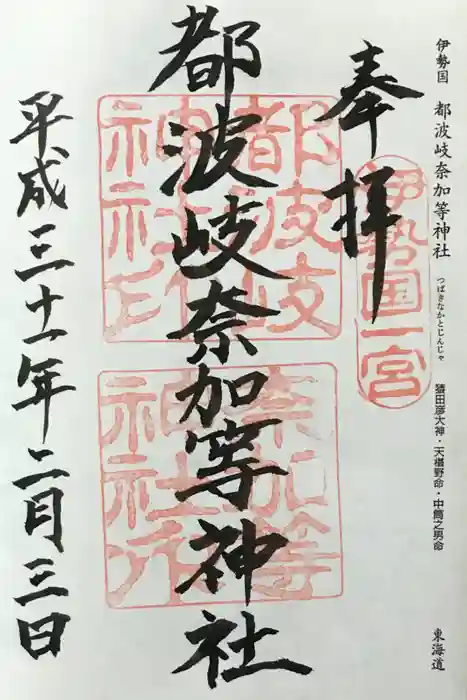 伊勢国 都波岐奈加等神社 つばきなかとじんじゃ 猿田彦大神・天椹野命・中筒之男命 東海道
奉拝
伊勢国一宮
都波岐奈加等神社
都波岐神社印
奈加等神社印
平成三十一年二月三日